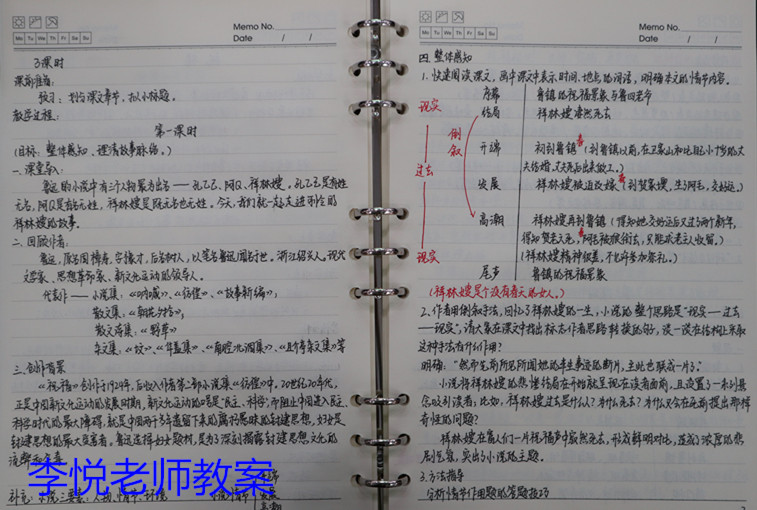 Memo No.
Mo Tu We Th Fr Sa Su
Date / /
3课时
课前准备:
预习:划分课文章节,拟小标题。
教学过程:
第一课时
(目标:整体感知、理清故事脉络。)
一.课堂导入:
鲁迅的小说中有三个人物最为出名——孔乙己、阿Q、祥林嫂。孔乙己是有姓
无名,阿Q是有名无姓,祥林嫂是既无名也无姓。今天,我们就一起走进
祥林嫂的故事。
二.回顾作者:
鲁迅,原名周樟寿,字豫才,后名树人,以笔名鲁迅闻名于世。浙江绍兴人。现代
文学家、思想革命家、新文化运动的领导人。
代表作——小说集:《呐喊》、《彷徨》、《故事新编》;
散文集:《朝花夕拾》;
散文诗集:《野草》
杂文集:《坟》、《华盖集》、《南腔北调集》、《且介亭杂文集》等
三.创作背景
《祝福》创作于1924年,后收入作者第二部小说集《彷徨》中。20世纪20年代,
正是中国新文化运动的发展时期,新文化运动的口号是"民主、科学",而阻止中国进入民主、
科学时代的最大障碍,就是中国两千多年遗留下来的腐朽愚昧的封建思想,妇女是
封建思想的最大受害者,鲁迅选择妇女题材,是为了深刻揭露封建思想文化的
李悦老师教案
补充:小说三要素:人物、情节、环境
发展
高潮
Memo No.
Mo Tu We Th Fr Sa Su
Date / /
四.整体感知
1.快速阅读课文,画中课文中表示时间、地点的词语,明确本文的情节内容。
序幕 鲁镇的祝福景象与鲁四老爷
现实 结局 祥林嫂凄然死去
倒叙
开端 初到鲁镇(到鲁镇以前,在卫家山和比自己小十岁的丈
过去 夫结婚,丈夫死后出来做工。)
发展 祥林嫂被迫改嫁(到贺家墺,生了阿毛,交好运。)
高潮 祥林嫂再到鲁镇(得知她交好运后又过了两个新年,
得知贺老六死,阿毛被狼衔去,只能求老主人收留。)
现实 (祥林嫂精神倍差,不允许参加祭礼。)
尾声 鲁镇的祝福景象
(祥林嫂是个没有春天的女人。)
2.作者用倒叙手法,回忆了祥林嫂的一生,小说的整个思路是"现实—过去
—现实",请大家在课文中找出标志作者思路转换的句子,谈一谈在结构上采取
这种手法有什么作用?
明确:"然而先前所见所闻的她的半生事迹的断片,至此也联成一片了。"
小说将祥林嫂的悲惨结局在开始就呈现在读者面前,且设置了一系列悬
念吸引读者,比如,祥林嫂过去是什么人?为什么死去?为什么又会在死前提出那样
奇怪的问题?
祥林嫂在富人们一片祝福声中寂然死去,形成鲜明对比,造成了浓厚的悲
剧气氛,突出了小说的主题。
3.方法指导
分析情节作用题的答题技巧